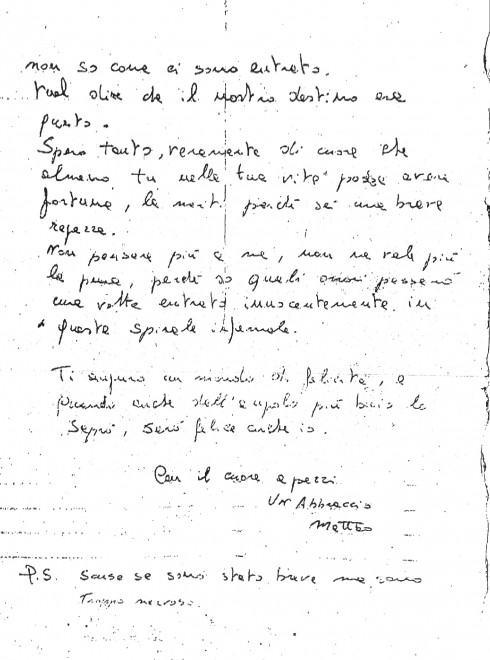 non so come ci sono entrato.
Vuol dire che il nostro destino era
questo.
Spero tanto, veramente di cuore che
almeno tu nella tua vita possa avere
fortuna, la meriti perché sei una brava
ragazza.
Non pensare più a me, non ne vale più
la pena, perché so quali passerò
una volta entrato innocentemente in
questa spirale infernale.
Ti auguro un mondo di felicità, e
quando anche dall'angolo più buio lo
saprò, sarò felice anch'io.
Con il cuore a pezzi
Un Abbraccio
Matteo
P.S. Scusa se sono stato breve ma sono
Troppo nervoso.